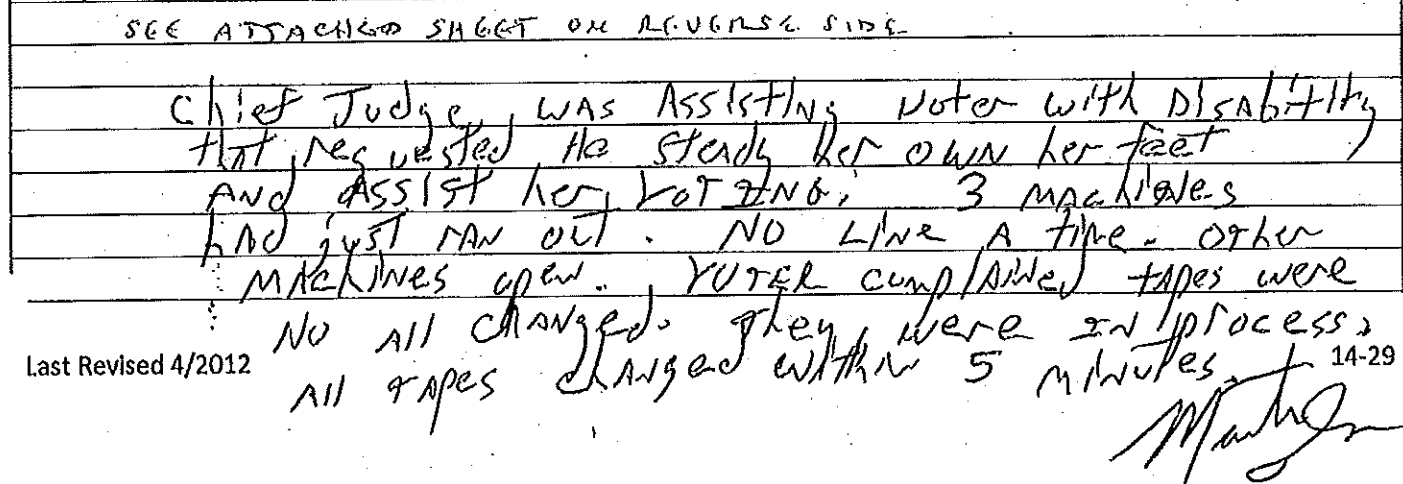 SEE ATTACHED SHEET ON REVERSE SIDE
Chief Judge, was Assisting Voter with Disability
tHt requested He steady her OWN her feet
AND Assist her VOTING. 3 MACHINES
had just ran out. NO LINE A time. Other
MACHINES open. VOTER complained tapes were
NO All changed. They were IN process.
Last Revised 4/2012
All tapes changed within 5 minutes.
14-29